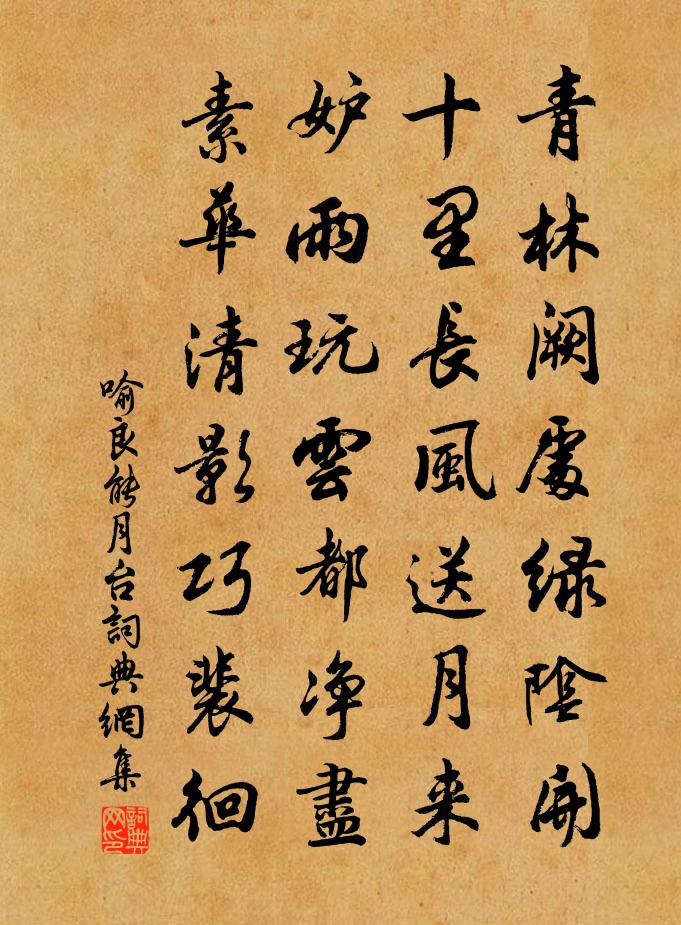 青林阙處緑陰開
十里長風送月来
妒雨玩雲都净盡
素華清影巧裴徊
喻良能月台詞典網集
詞典网印